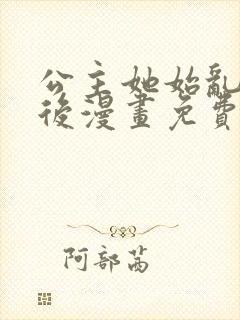 公主她始亂
後漫畫免費
阿部茜